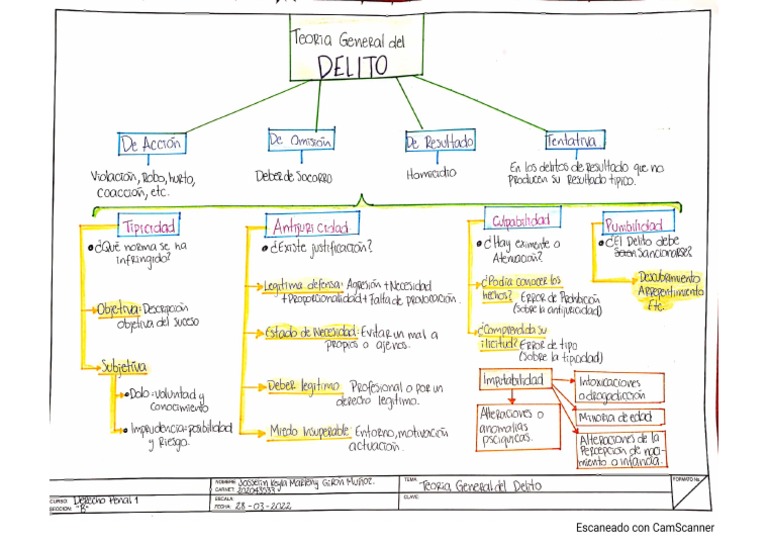 Teoria General del
DELITO
De Acción
De Omisión
De Resultado
Tentativa
Violación, Robo, hurto,
coacción, etc.
Deber de Socorro
Homicidio
En los delitos de resultado que no
producen su resultado tipico.
Tipicidad
Antijuricidad
Culpabilidad
Punibilidad
¿Qué norma se ha
infringido?
¿Existe justificación?
¿Hay eximente o
Atenuación?
¿El Delito debe
sancionarse?
Objetiva: Descripción
objetiva del suceso
Subjetiva
Dolo: voluntad y
conocimiento
Imprudencia: posibilidad
y Riesgo.
Legitima defensa: Agresión + Necesidad
+ Proporcionalidad + Falta de provocación.
Estado de Necesidad: Evitar un mal a
propios o ajenos.
Deber legitimo Profesional o por un
derecho legitimo.
Miedo Insuperable: Entorno, motivación
actuación.
¿Podia conocer los
hechos? Error de Prohibición
(sobre la antijuricidad)
¿Comprendía su
ilicitud? Error de tipo
(sobre la tipicidad)
Descubrimiento
Arrepentimiento
Etc.
Imputabilidad
Alteraciones o
anomalias
psciquicas.
Intoxicaciones
o drogadicción
Minoria de edad
Alteraciones de la
Percepcion de naci-
miento o infancia.
NOMBRE: Josselin Keyla Marleny Girón Muñoz.
CARNET:
CURSO: Derecho Penal 1
SECCION: "B"
ESCALA:
FECHA: 28-03-2022
TEMA: Teoria General del Delito
CLAVE:
FORMATO No.
Escaneado con CamScanner